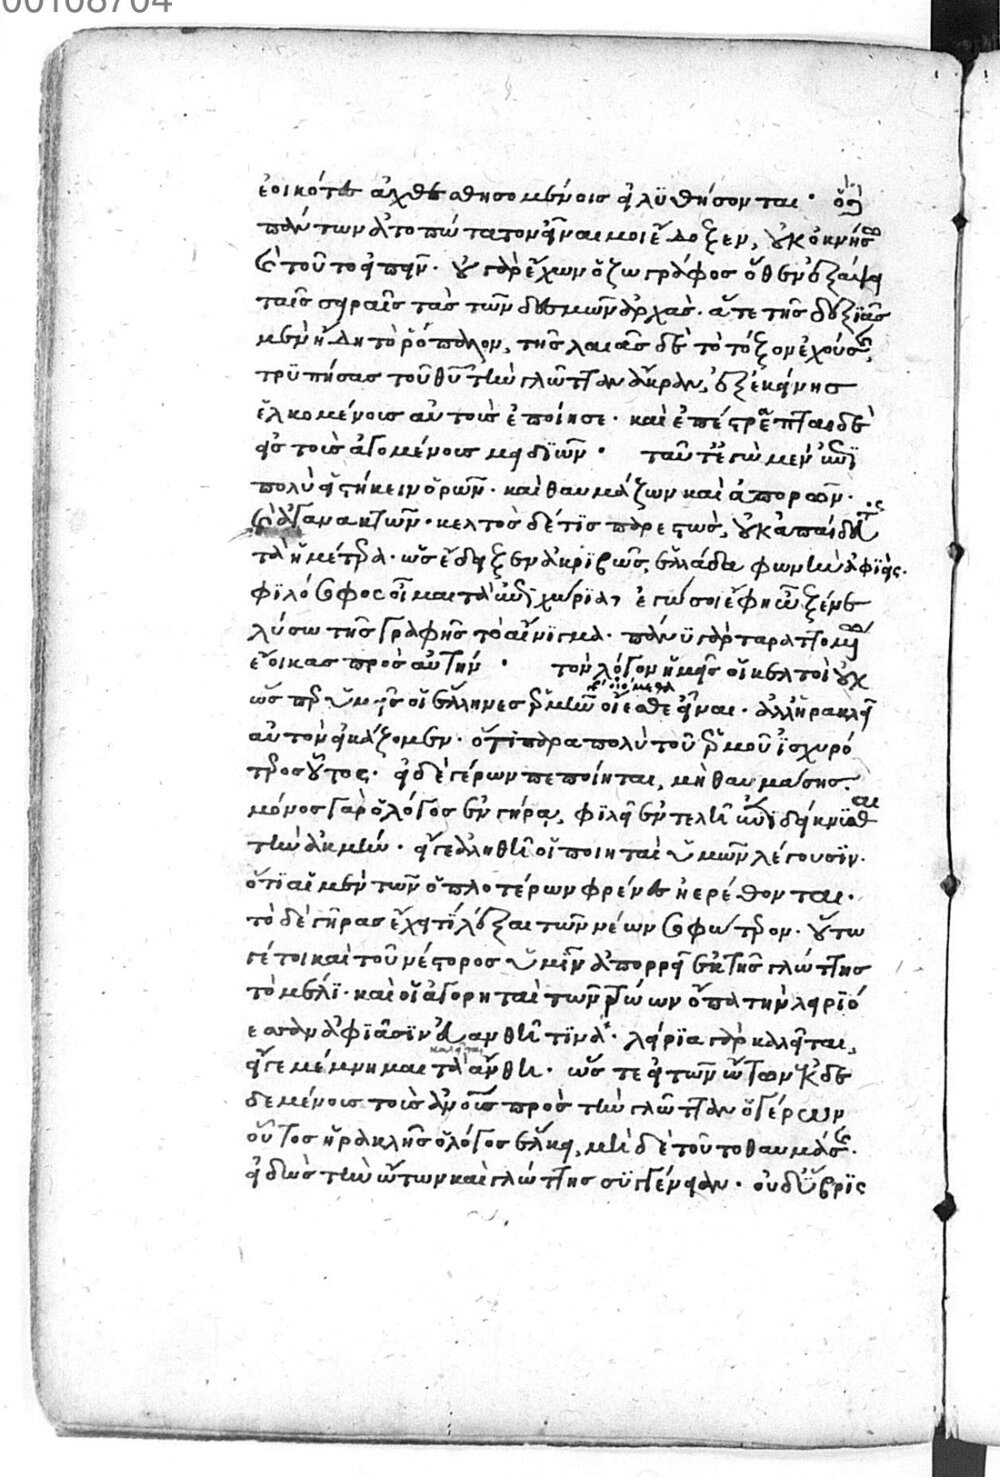 00108704
ἐοικότες ἀχθεσθησομένοις εἰ λυθήσονται· ὃ δὲ
πάντων ἀτοπώτατον εἶναί μοι ἔδοξεν, οὐκ ὀκνήσω
καὶ τοῦτο εἰπεῖν· οὐ γὰρ ἔχων ὁ ζωγράφος ὅθεν ἐξάψει
ταῖς σειραῖς τὰς τῶν δεσμῶν ἀρχὰς· ἅτε τῆς δεξιᾶς
μὲν ἤδη τὸ ῥόπαλον, τῆς λαιᾶς δὲ τὸ τόξον ἐχούσης,
τρυπήσας τοῦ θεοῦ τὴν γλῶτταν ἄκραν, ἐξ ἐκείνης
ἑλκομένους αὐτοὺς ἐποίησε· καὶ ἐπέστραπται δὲ
εἰς τοὺς ἀγομένους μειδιῶν· ταῦτ' ἐγὼ μὲν ἐπὶ
πολὺ εἱστήκειν ὁρῶν· καὶ θαυμάζων καὶ ἀπορῶν·
καὶ ἀγανακτῶν· κελτὸς δέ τις παρεστὼς, οὐκ ἀπαίδευτος
τὰ ἡμέτερα· ὡς ἔδειξεν ἀκριβῶς, ἑλλάδα φωνὴν ἀφιείς·
φιλόσοφος οἶμαι τὰ ἐπιχώρια, ἐγώ σοι ἔφη ὦ ξένε
λύσω τῆς γραφῆς τὸ αἴνιγμα· πάνυ γὰρ ταραττομένῳ
ἔοικας πρὸς αὐτήν· τὸν λόγον ἡμεῖς οἱ κελτοὶ οὐχ
ὥσπερ ὑμεῖς οἱ ἕλληνες ἑρμῆν οἴεσθε εἶναι· ἀλλ' ἡρακλεῖ
αὐτὸν εἰκάζομεν· ὅτι παρὰ πολὺ τοῦ ἑρμοῦ ἰσχυρό
τερος οὗτος· εἰ δὲ γέρων πεποίηται, μὴ θαυμάσῃς·
μόνος γὰρ ὁ λόγος ἐν γήρᾳ, φιλεῖ ἐντελῆ ἐπιδείκνυσθαι
τὴν ἀκμήν· εἴγε ἀληθῆ οἱ ποιηταὶ ὑμῶν λέγουσιν·
ὅτι αἱ μὲν τῶν ὁπλοτέρων φρένες ἠερέθονται·
τὸ δὲ γῆρας ἔχει τι λέξαι τῶν νέων σοφώτερον· οὕτω
γέ τοι καὶ τοῦ νέστορος ὑμῖν ἀπορρεῖ ἐκ τῆς γλώττης
τὸ μέλι· καὶ οἱ ἀγορηταὶ τῶν τρώων ὄπα τὴν λειριό
εσσαν ἀφιᾶσιν εὐανθῆ τινά· λείρια γὰρ καλεῖται,
εἴγε μέμνημαι τὰ ἄνθη· ὥστε εἰ τῶν ὤτων ἐκδε
δεμένους τοὺς ἀνθρώπους πρὸς τὴν γλῶτταν ὁ γέρων
οὗτος ἡρακλῆς ὁ λόγος ἕλκει, μὴ δὲ τοῦτο θαυμάσῃς·
εἰδὼς τὴν ὤτων καὶ γλώττης συγγένειαν· οὐδ' ὕβρις